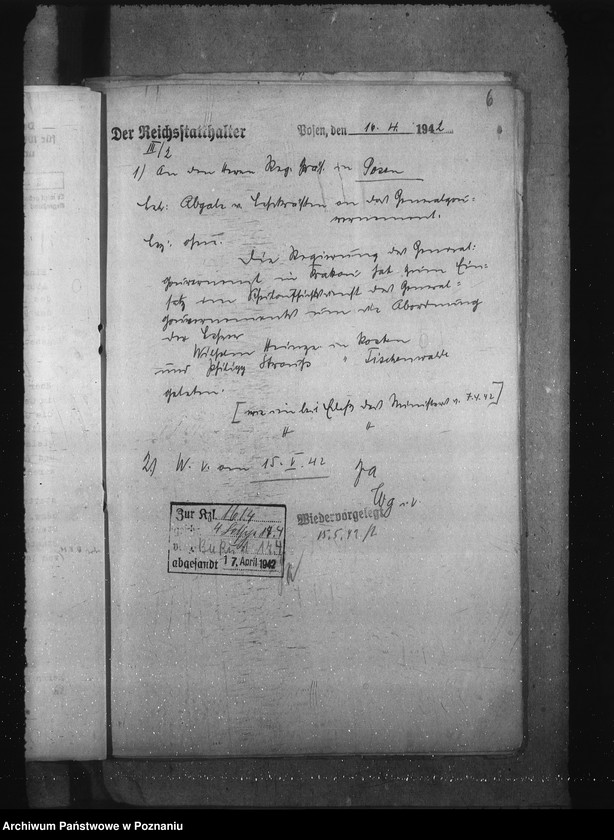 6
Der Reichsstatthalter
Posen, den 16. 4. 1942
III/2
1) An den Herrn Reg. Präs. in Posen
betr. Abgabe v. Lehrkräften an das Generalgou-
vernement.
bez: ohne.
Die Regierung des General-
gouvernements in Krakau hat zum Ein-
satz im Schulaufsichtsamt des General-
gouvernements um die Abordnung
der Lehrer
Wilhelm Heinze in Kosten
und Philipp Strauß " Tischenwalde
gebeten.
[wie bei Erlaß des Ministers v. 7.4.42]
2) W. V. am 15. V. 42
Zur Kzl. 16/4
17.4
17.4
abgesandt 17. April 1942
Wiedervorgelegt
15.5.42
Archiwum Państwowe w Poznaniu